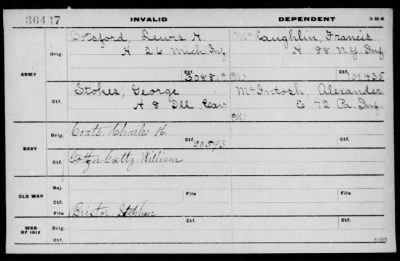 36437
INVALID DEPENDENT 3-216
Botsford, Lewis McLaughlin, Francis
Orig. A 26 Mich Inf H 88 N.Y. Inf
Ctf. Ctf.
ARMY
Stokes, George McIntosh, Alexander
Ctf. A 8 Ill Cav E 72 Pa. Inf
(W)
Coats, Charles H.
Orig. Ctf. Ctf.
NAVY
William
Ctf.
Rej. File File
OLD WAR
Ctf.
Bristor, Stephen File File
WAR OF 1812
Ctf.